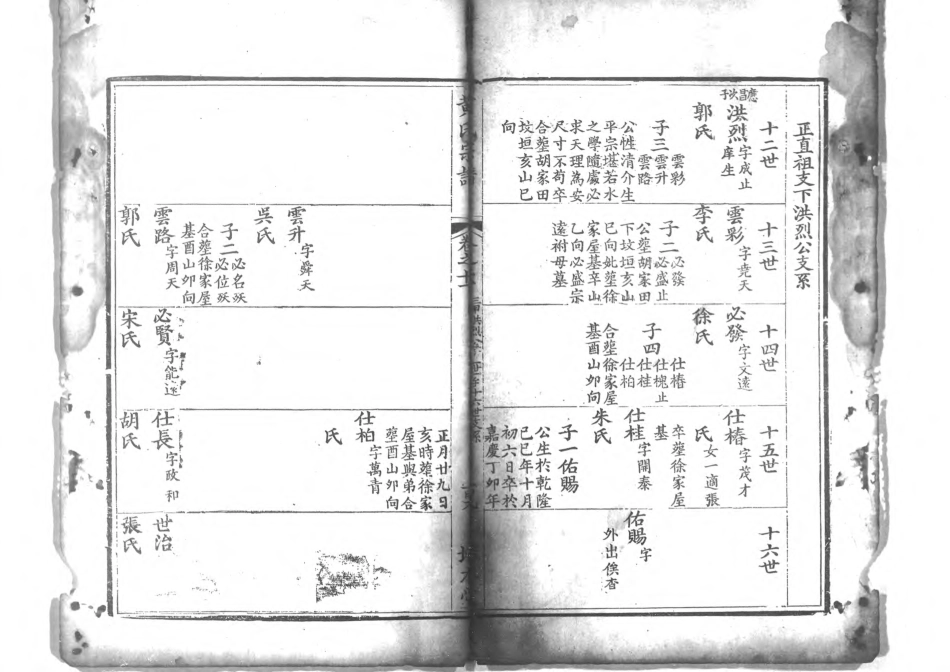 正直祖支下洪烈公支系
十二世
應昌次子
洪烈字成止庠生
郭氏
子三雲彩雲升雲路
公性清介生
平宗堪若水
之學隨處必
求天理為安
尺寸不苟卒
合塟胡家田
坟垣亥山巳
向
十三世
雲彩字堯天
李氏
子二必發必盛止
公塟胡家田
下坟垣亥山
巳向妣塟徐
家屋基辛山
乙向必盛宗
遠祔母墓
十四世
必發字文遠
徐氏
子四仕椿仕槐止仕桂仕柏
合塟徐家屋
基酉山卯向
十五世
仕椿字茂才
氏女一適張
卒塟徐家屋
基
仕桂字開泰
朱氏
子一佑賜
公生於乾隆
己巳年十月
初六日卒於
嘉慶丁卯年
十六世
佑賜字
外出俟查
黃氏宗譜
卷之十
雲升字舜天
吳氏
子二必名妖必位妖
合塟徐家屋
基酉山卯向
雲路字周天
郭氏
必賢字能遠
宋氏
正月廿九日
亥時塟徐家
屋基與弟合
塟酉山卯向
仕柏字萬青
氏
仕長字政和
胡氏
世治
張氏